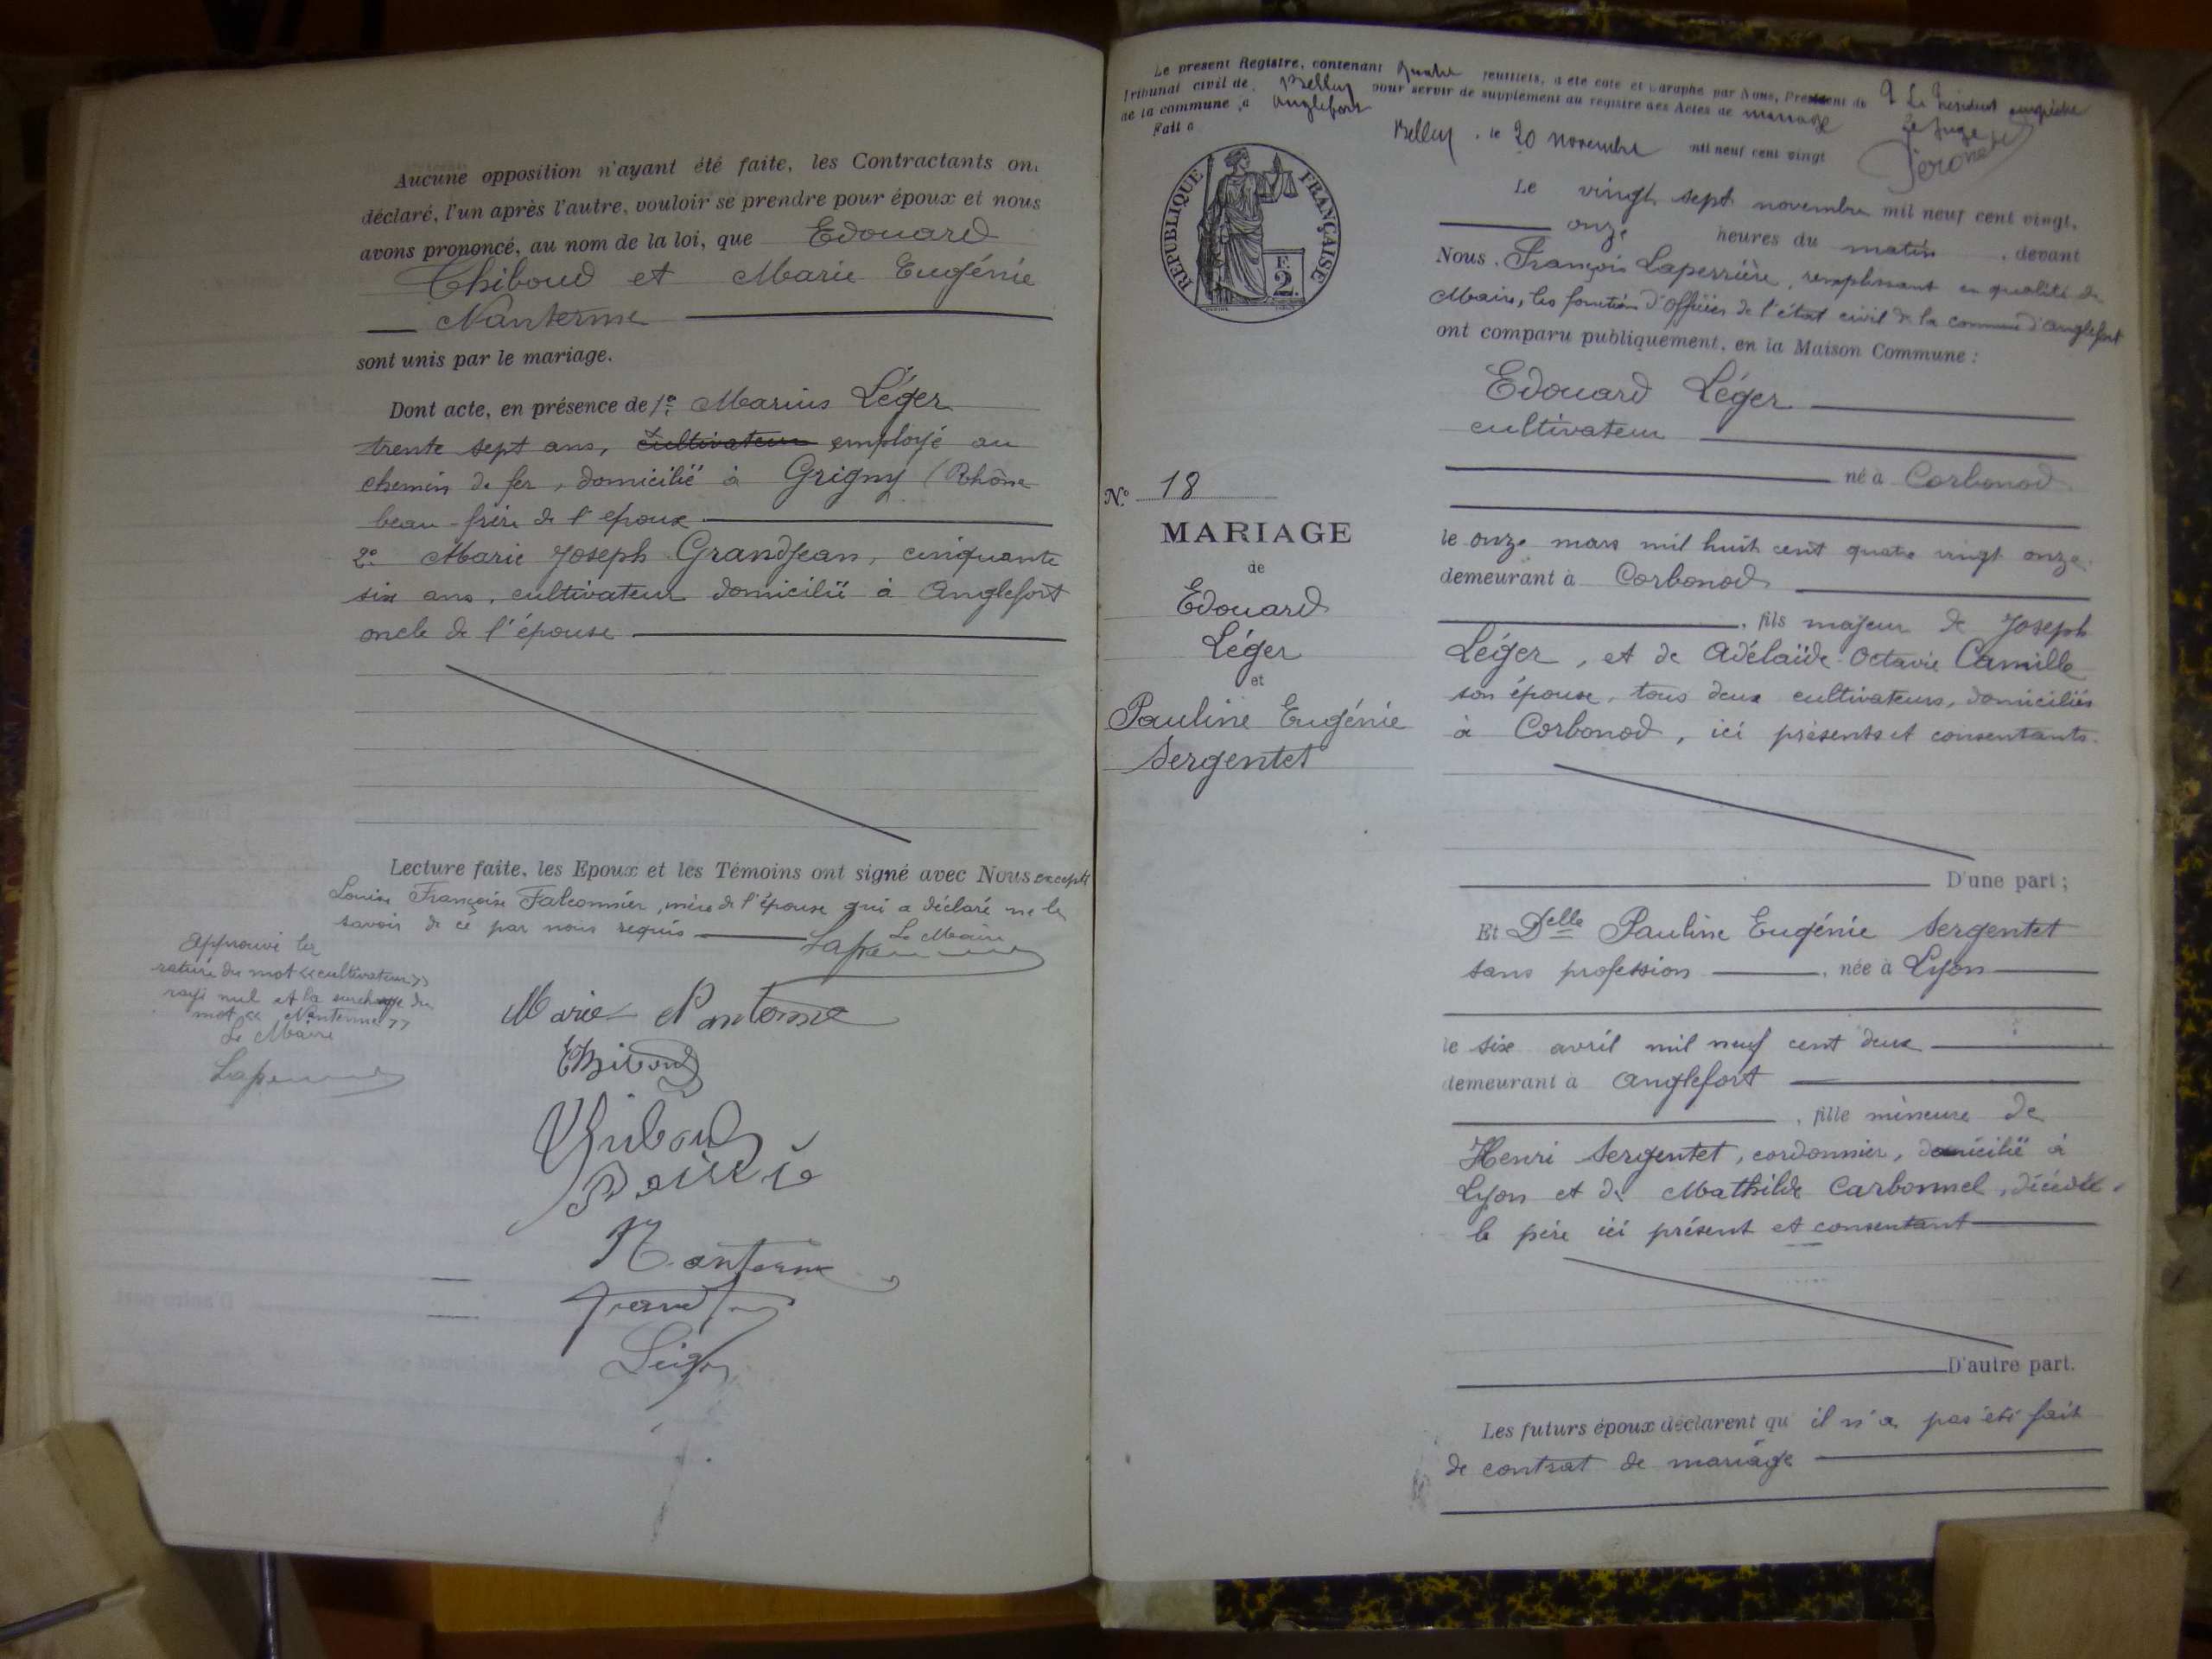 Aucune opposition n'ayant été faite, les Contractants on
déclaré, l'un après l'autre, vouloir se prendre pour époux et nous
avons prononcé, au nom de la loi, que Edouard
Thiboud et Marie Eugénie
Nanterme
sont unis par le mariage.
Dont acte, en présence de 1º Marius Léger
trente sept ans, cultivateur employé au
chemin de fer, domicilié à Grigny (Rhône
beau-frère de l'époux
2º Marie Joseph Grandjean, cinquante
six ans, cultivateur domicilié à Anglefort
oncle de l'épouse
Lecture faite, les Epoux et les Témoins ont signé avec Nous excepté
Louise Françoise Falconnier, mère de l'épouse qui a déclaré ne le
savoir de ce par nous requis
Le Maire
Approuvé la
rature du mot «cultivateur»
rayé nul et la surcharge du
mot «Nanterme»
Le Maire
Marie Nanterme
Thiboud
Thiboud
Nanterme
Léger
Le présent Registre, contenant quatre feuillets, a été coté et paraphé par Nous, Président du
Tribunal civil de Belley pour servir de supplément au registre des Actes de mariage
de la commune d Anglefort
Fait à Belley, le 20 novembre mil neuf cent vingt
Le Président empêché
Le Juge
RÉPUBLIQUE FRANÇAISE
F.
2.
Le vingt sept novembre mil neuf cent vingt,
onze heures du matin, devant
Nous, François Laperrière, remplissant en qualité de
Maire, les fonctions d'officier de l'état civil de la commune d'Anglefort
ont comparu publiquement, en la Maison Commune :
Edouard Léger
cultivateur
né à Corbonod
le onze mars mil huit cent quatre vingt onze
demeurant à Corbonod
, fils majeur de Joseph
Léger, et de Adélaïde Octavie Camille
son épouse, tous deux cultivateurs, domiciliés
à Corbonod, ici présents et consentants.
D'une part ;
Nº 18
MARIAGE
de
Edouard
Léger
et
Pauline Eugénie
Sergentet
Et Delle Pauline Eugénie Sergentet
sans profession, née à Lyon
le six avril mil neuf cent deux
demeurant à Anglefort
, fille mineure de
Henri Sergentet, cordonnier, domicilié à
Lyon et de Mathilde Carbonnel, décédée.
le père ici présent et consentant
D'autre part.
Les futurs époux déclarent qu'il n'a pas été fait
de contrat de mariage